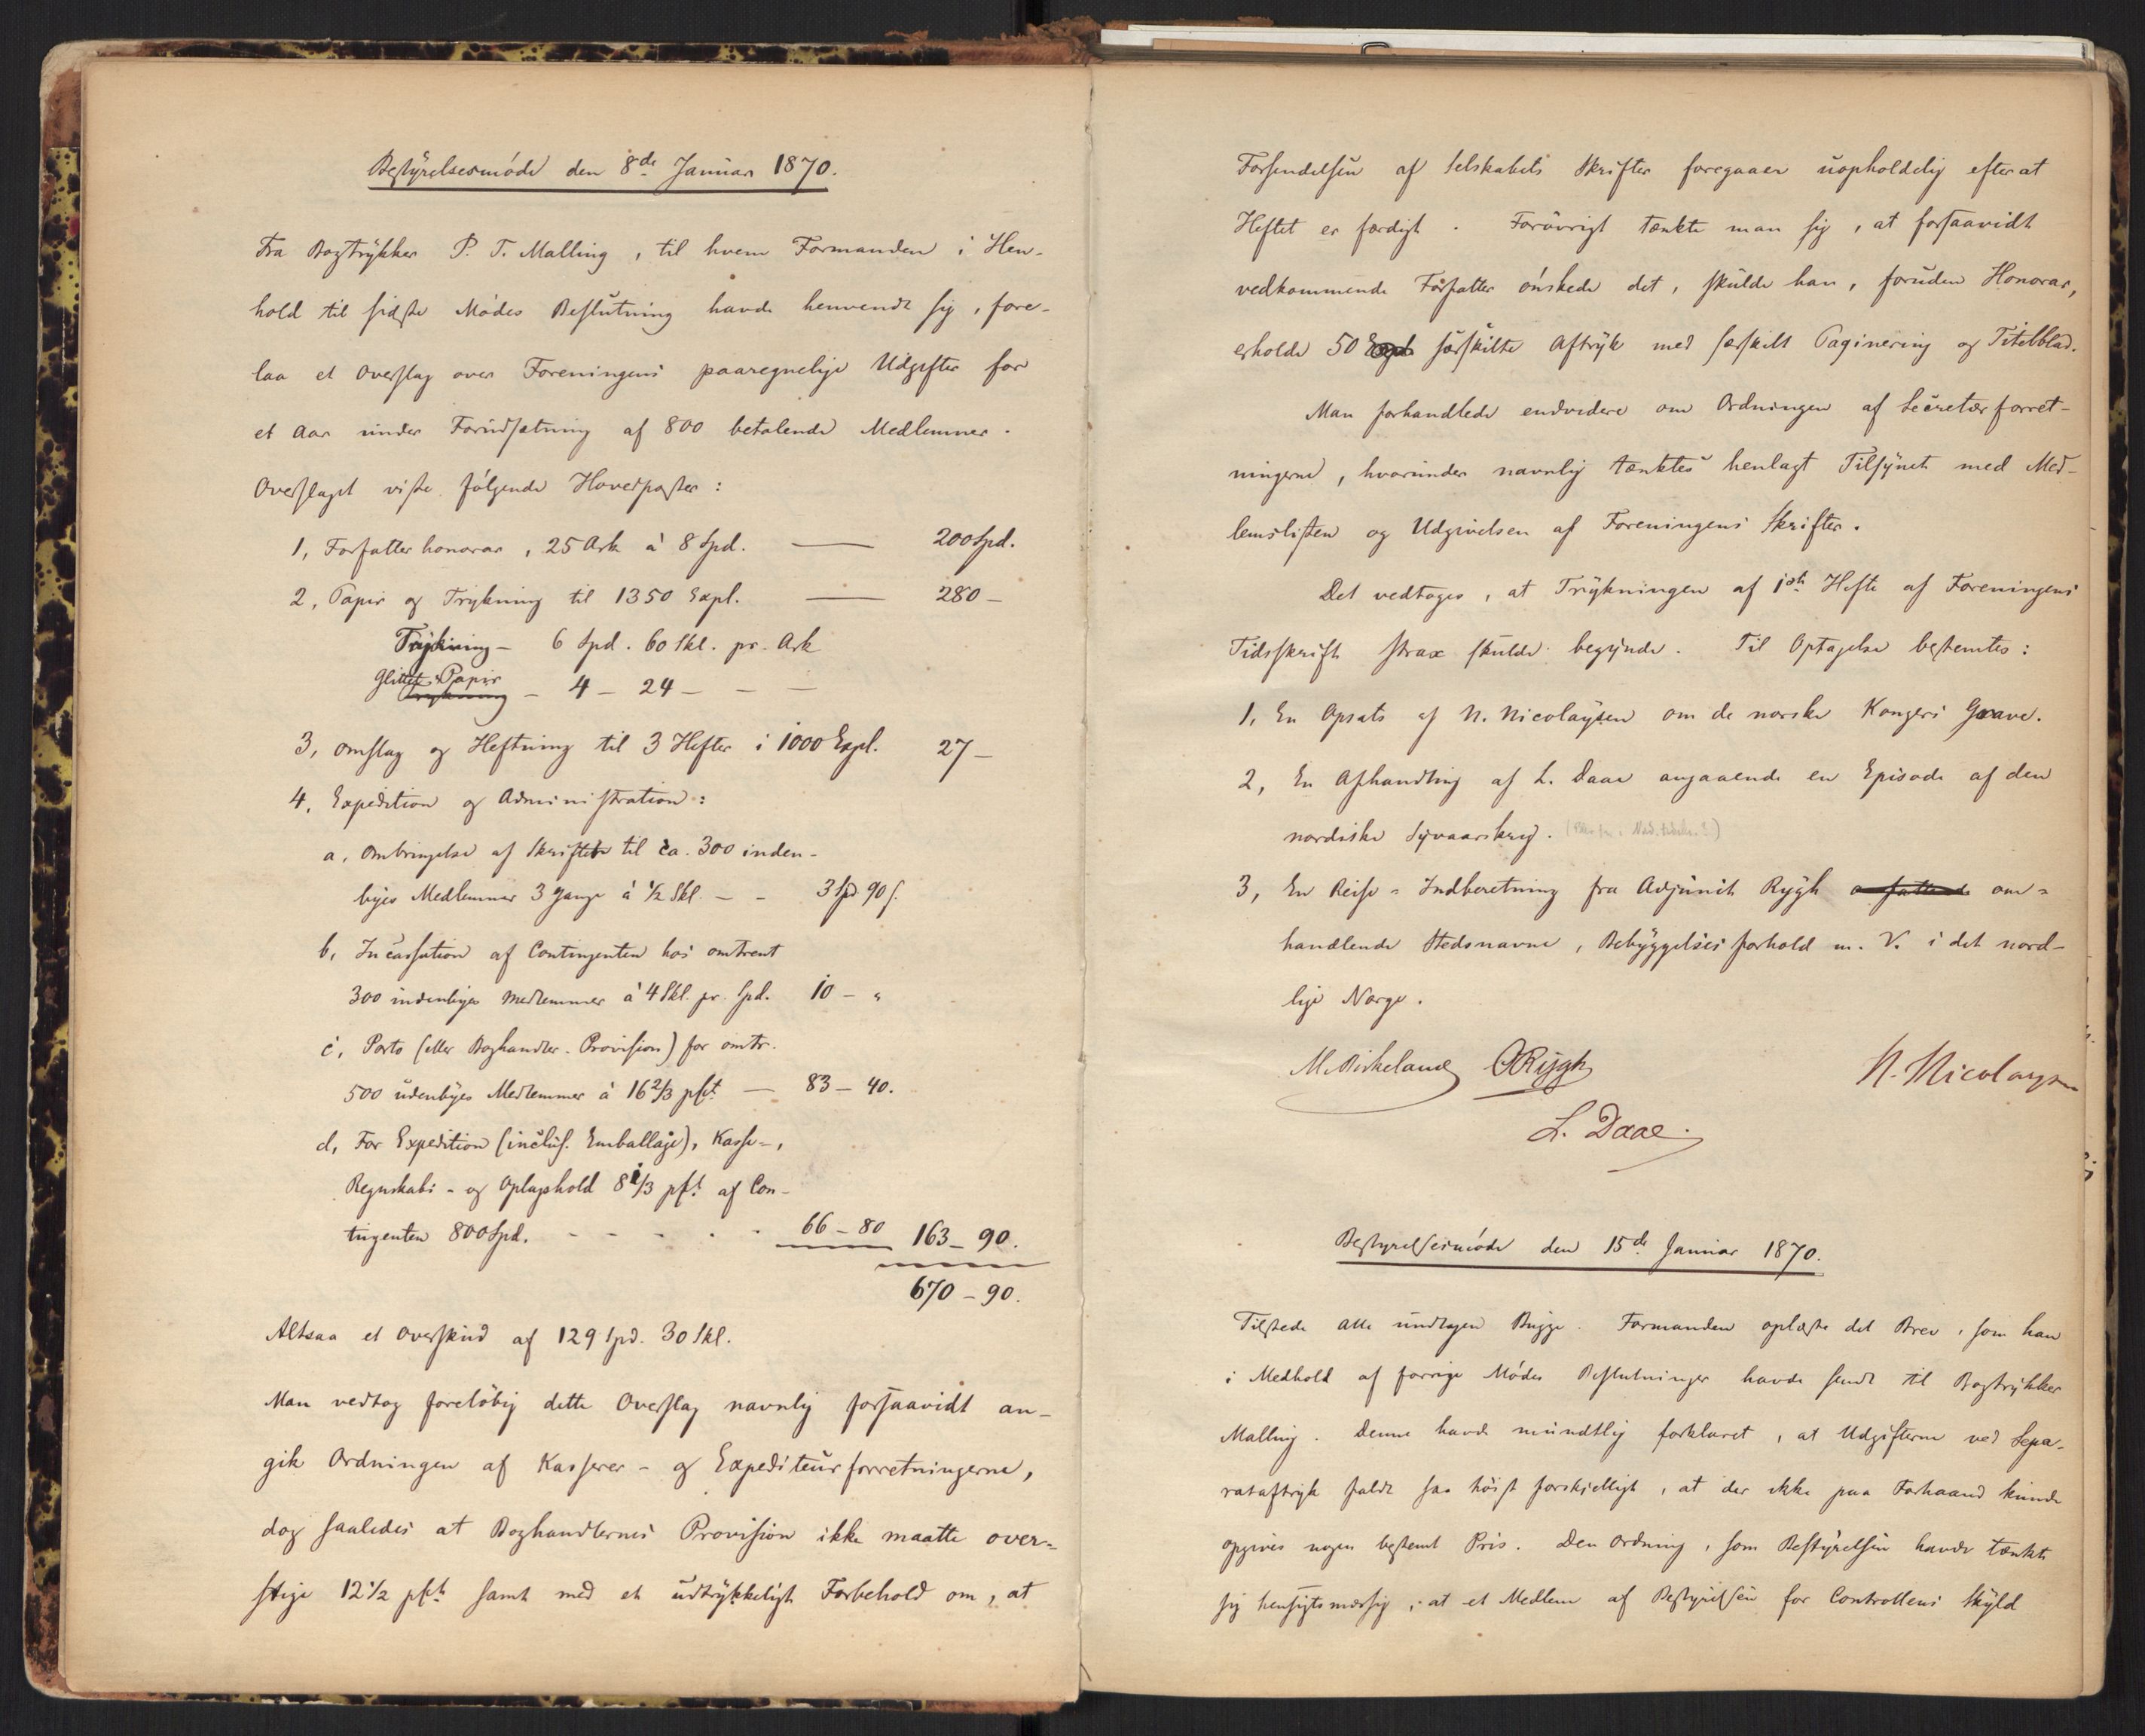 Bestyrelsesmöde den 8de Januar 1870.
Fra Bogtrykker P. T. Malling, til hvem Formanden i Hen-
hold til sidste Mödes Beslutning havde henvendt sig, fore-
laa et Overslag over Foreningens paaregnelige Udgifter for
et Aar under Forudsætning af 800 betalende Medlemmer.
Overslaget viste følgende Hovedposter:
1, Forfatterhonorar, 25 Ark à 8 Spd. — 200 Spd.
2, Papir og Trykning til 1350 Expl. — 280 —
Trykning — 6 Spd. 60 Skl. pr. Ark
Glittet Papir
Trykning — 4 — 24 — — —
3, Omslag og Heftning til 3 Hefter i 1000 Expl. 27 —
4, Expedition og Administration:
a, Ombringelse af Skriftet til ca. 300 inden-
byes Medlemmer 3 Gange à ½ Skl. — - 3 Spd 90 s.
b, Incassation af Contingenten hos omtrent
300 indenbyes Medlemmer à 4 Skl. pr. Spd. 10 — "
c, Porto (eller Boghandler-Provision) for omtr.
500 udenbyes Medlemmer à 16 2/3 pCt. — 83 — 40.
d, For Expedition (inclus. Emballage), Kasse-,
Regnskabs- og Oplagshold 8 1/3 pCt. af Con-
tingenten 800 Spd. - - - - - 66 — 80 163 — 90.
670 — 90.
Altsaa et Overskud af 129 Spd. 30 Skl.
Man vedtog foreløbig dette Overslag navnlig forsaavidt an-
gik Ordningen af Kasserer- og Expediteurforretningerne,
dog saaledes at Boghandlernes Provision ikke maatte over-
stige 12½ pCt. samt med et udtrykkeligt Forbehold om, at
Forsendelsen af Selskabets Skrifter foregaaer uopholdelig efterat
Heftet er færdigt. Forövrigt tænkte man sig, at forsaavidt
vedkommende Forfatter önskede det, skulde han, foruden Honorar,
erholde 50 Expl særskilte Aftryk med særskilt Paginering og Titelblad.
Man forhandlede endvidere om Ordningen af Secretærforret-
ningerne, hvorunder navnlig tænktes henlagt Tilsynet med Med-
lemslisten og Udgivelsen af Foreningens Skrifter.
Det vedtoges, at Trykningen af 1ste Hefte af Foreningens
Tidsskrift strax skulde begynde. Til Optagelse bestemtes:
1, En Opsats af N. Nicolaysen om de norske Kongers Grave.
2, En Afhandling af L. Daae angaaende en Episode af den
nordiske Syvaarskrig.
3, En Reise-Indberetning fra Adjunct Rygh omfattende om-
handlende Stedsnavne, Bebyggelsesforhold m. V. i det nord-
lige Norge.
M. Birkeland ORygh N. Nicolaysen
L. Daae.
Bestyrelsesmöde den 15de Januar 1870.
Tilstede alle undtagen Bugge. Formanden oplæste det Brev, som han
i Medhold af forrige Mödes Beslutninger havde sendt til Bogtrykker
Malling. Denne havde mundtlig forklaret, at Udgifterne ved Sepa-
rataftryk faldt saa höist forskjelligt, at der ikke paa Forhaand kunde
opgives nogen bestemt Pris. Den Ordning, som Bestyrelsen havde tænkt
sig hensigtsmæssig, at et Medlem af Bestyrelsen for Controllens Skyld